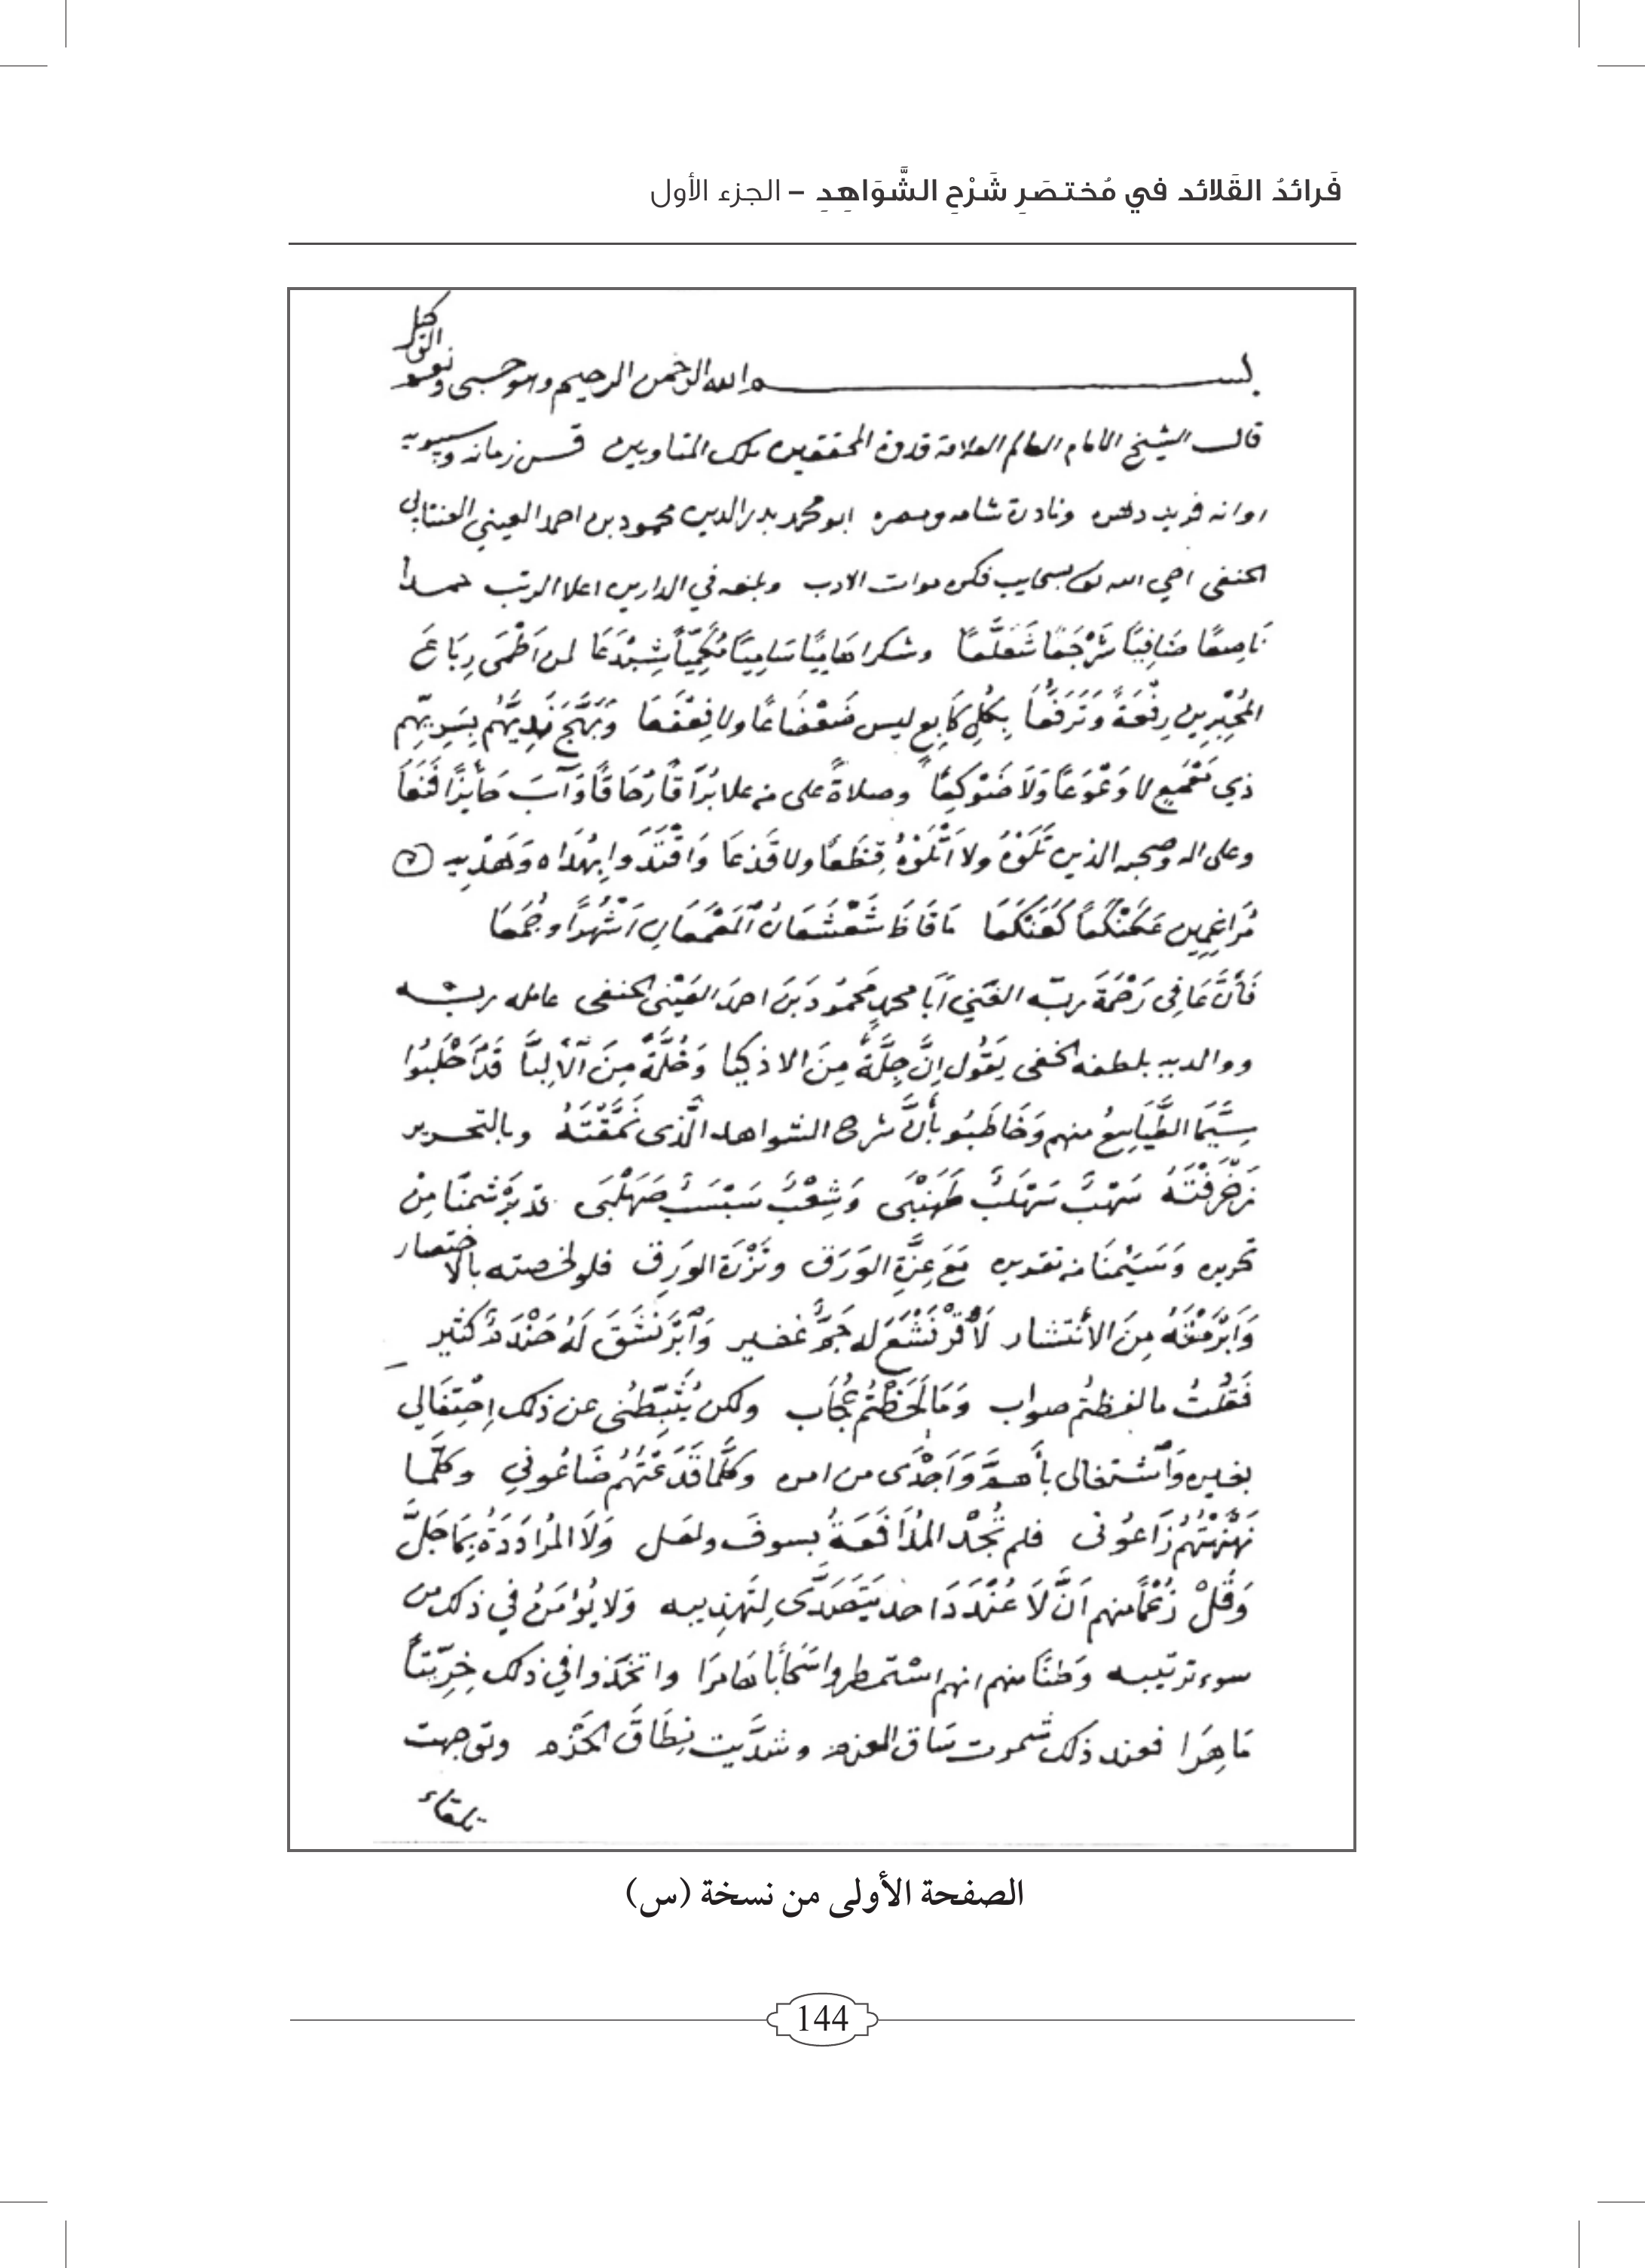 فَرائدُ القَلائد في مُختصَرِ شَرْحِ الشَّوَاهِدِ – الجزء الأول
بسم الله الرحمن الرحيم وهو حسبي ونعم الوكيل
قال الشيخ الامام العالم العلامة قدوة المحققين ملك المتاوبين قس زمانه وسيبويه
اوانه فريد دهره ونادرة شامه ومصره ابو محمد بدر الدين محمود بن احمد العيني العنتابي
الحنفي احيي الله بسحايب فكره موات الادب وبلغه في الدارين اعلا الرتب حمدا
نَاصِعًا ضَافِيًا شَرْجَعًا شَعَلَّعًا وشكرا هَامِيًا سَامِيًا لمن اَطْمَى رِبَاعَ
رِفْعَةً وَتَرَفُّعاً بِكُلِّ كَابِعٍ ليس ضَعْضَاعًا ولا
ذي لا وَعْوَعًا وَلَا ضَوْكَعًا وصلاةً على من علا بُرَاقًا
وعلى اله وصحبه الذين تَلَوْهُ ولا وَاقْتَدَوا بِهُدَاه وَهَدْيِه
مُرَاغِمِين مَا قَاظَ شَعْشَعَانُ اَلمَعْمَعَانِ اَشْهُرًا وجُمَعَا
فَأَنَّ عَافِي رَحْمَةَ ربّه الغَنِي أَبَا محمدٍ مَحمُودَ بنَ احمدَ العَيْنى الحنفى عامله ربه
ووالديه بلطفه الخفى يَقُول إِنَّ جِلَّةً مِنَ الاذكيا وَخُلَّةً مِنَ الأَلِبَّا قَدْ
سِيَّمَا منهم وَخَاطَبُو بأَنَّ شرح الشواهد الَّذى نَمَّقْتَهُ وبالتحرير
زَخْرَفْتَهُ سَهْبٌ سَهْلَبٌ وَشِعْبٌ سَبْسَبٌ قد بَرْشمنَا مِنْ
تحريره وَسَئِمْنَا من تقديره مَعَ عِزَّةِ الوَرَق ونَزْرَة الورِق فلو لخصته بالاختصار
مِنَ الأنتشار له جَمٌّ غفير وَابْرَنشَقَ لَهُ كثير
فَقُلْتُ ما لفظتم صواب وَمَا لَحَظْتُم عُجَاب ولكن يُثَبِّطُنى عن ذلك اِحْتِفَالي
بغيره وَاشتغالى بأَهمَّ وَاَجْدَى من امره وكلَّمَا قَدَعْتُهُم ضَاعُوني وكلّما
نَهْنَهْتُهُم زَاعُونى فلم تُجْد المُدَافَعَةُ بسوفَ ولعل وَلَا المُرَاوَدَةُ بمَا جَلَّ
وَقَلَّ زُعْمًا منهم اَنَّ لَا عُنْدَدَ يَتَصَدَّى لِتَهذِيبه وَلا يُؤمَنُ في ذلك من
سوء ترتيبه وَظنًّا منهم انهم اسْتمطروا سَحَابًا هَامرًا واتخذوا في ذلك خِرِّيتًا
مَاهِرًا فعند ذلك شمرت سَاق العزم وشدَّيت نِطَاقَ الحَزم وتوجهت
تلقاء
الصفحة الأولى من نسخة (س)
144